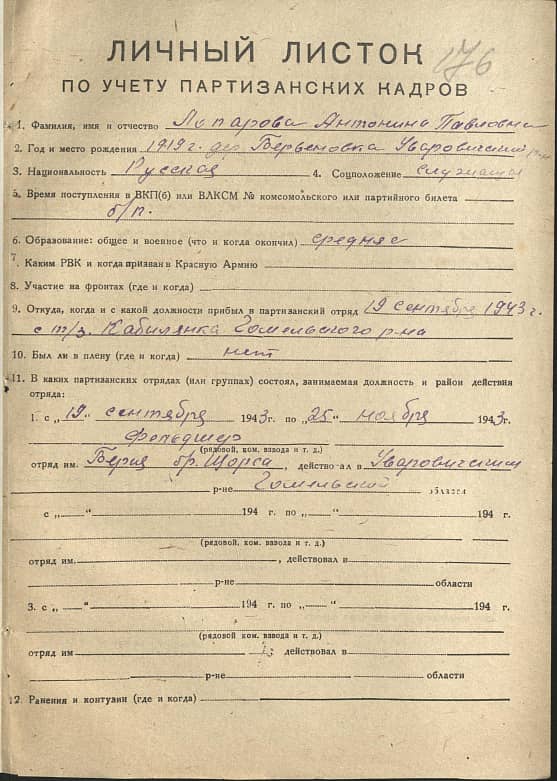 176
ЛИЧНЫЙ ЛИСТОК
ПО УЧЕТУ ПАРТИЗАНСКИХ КАДРОВ
1. Фамилия, имя и отчество Лопарова Антонина Павловна
2. Год и место рождения 1919 г. дер. Уваровичский
3. Национальность Русская 4. Соцположение служащая
5. Время поступления в ВКП(б) или ВЛКСМ № комсомольского или партийного билета
б/п.
6. Образование: общее и военное (что и когда окончил) среднее
7. Каким РВК и когда призван в Красную Армию
8. Участие на фронтах (где и когда)
9. Откуда, когда и с какой должности прибыл в партизанский отряд 19 сентября 1943 г.
с Кабилянка Гомельского р-на
10. Был ли в плену (где и когда) нет
11. В каких партизанских отрядах (или группах) состоял, занимаемая должность и район действия
отряда:
1. с „19“ сентября 1943 г. по „25“ ноября 1943 г.
Фельдшер
(рядовой, ком. взвода и т. д.)
отряд им. Берия бр. Щорса, действовал в Уваровичским
р-не Гомельской области
с „ “ 194 г. по „ “ 194 г.
(рядовой, ком. взвода и т. д.)
отряд им. , действовал в
р-не области
3. с „ “ 194 г. по „ “ 194 г.
(рядовой, ком. взвода и т. д.)
отряд им действовал в
р-не области
12. Ранения и контузии (где и когда)